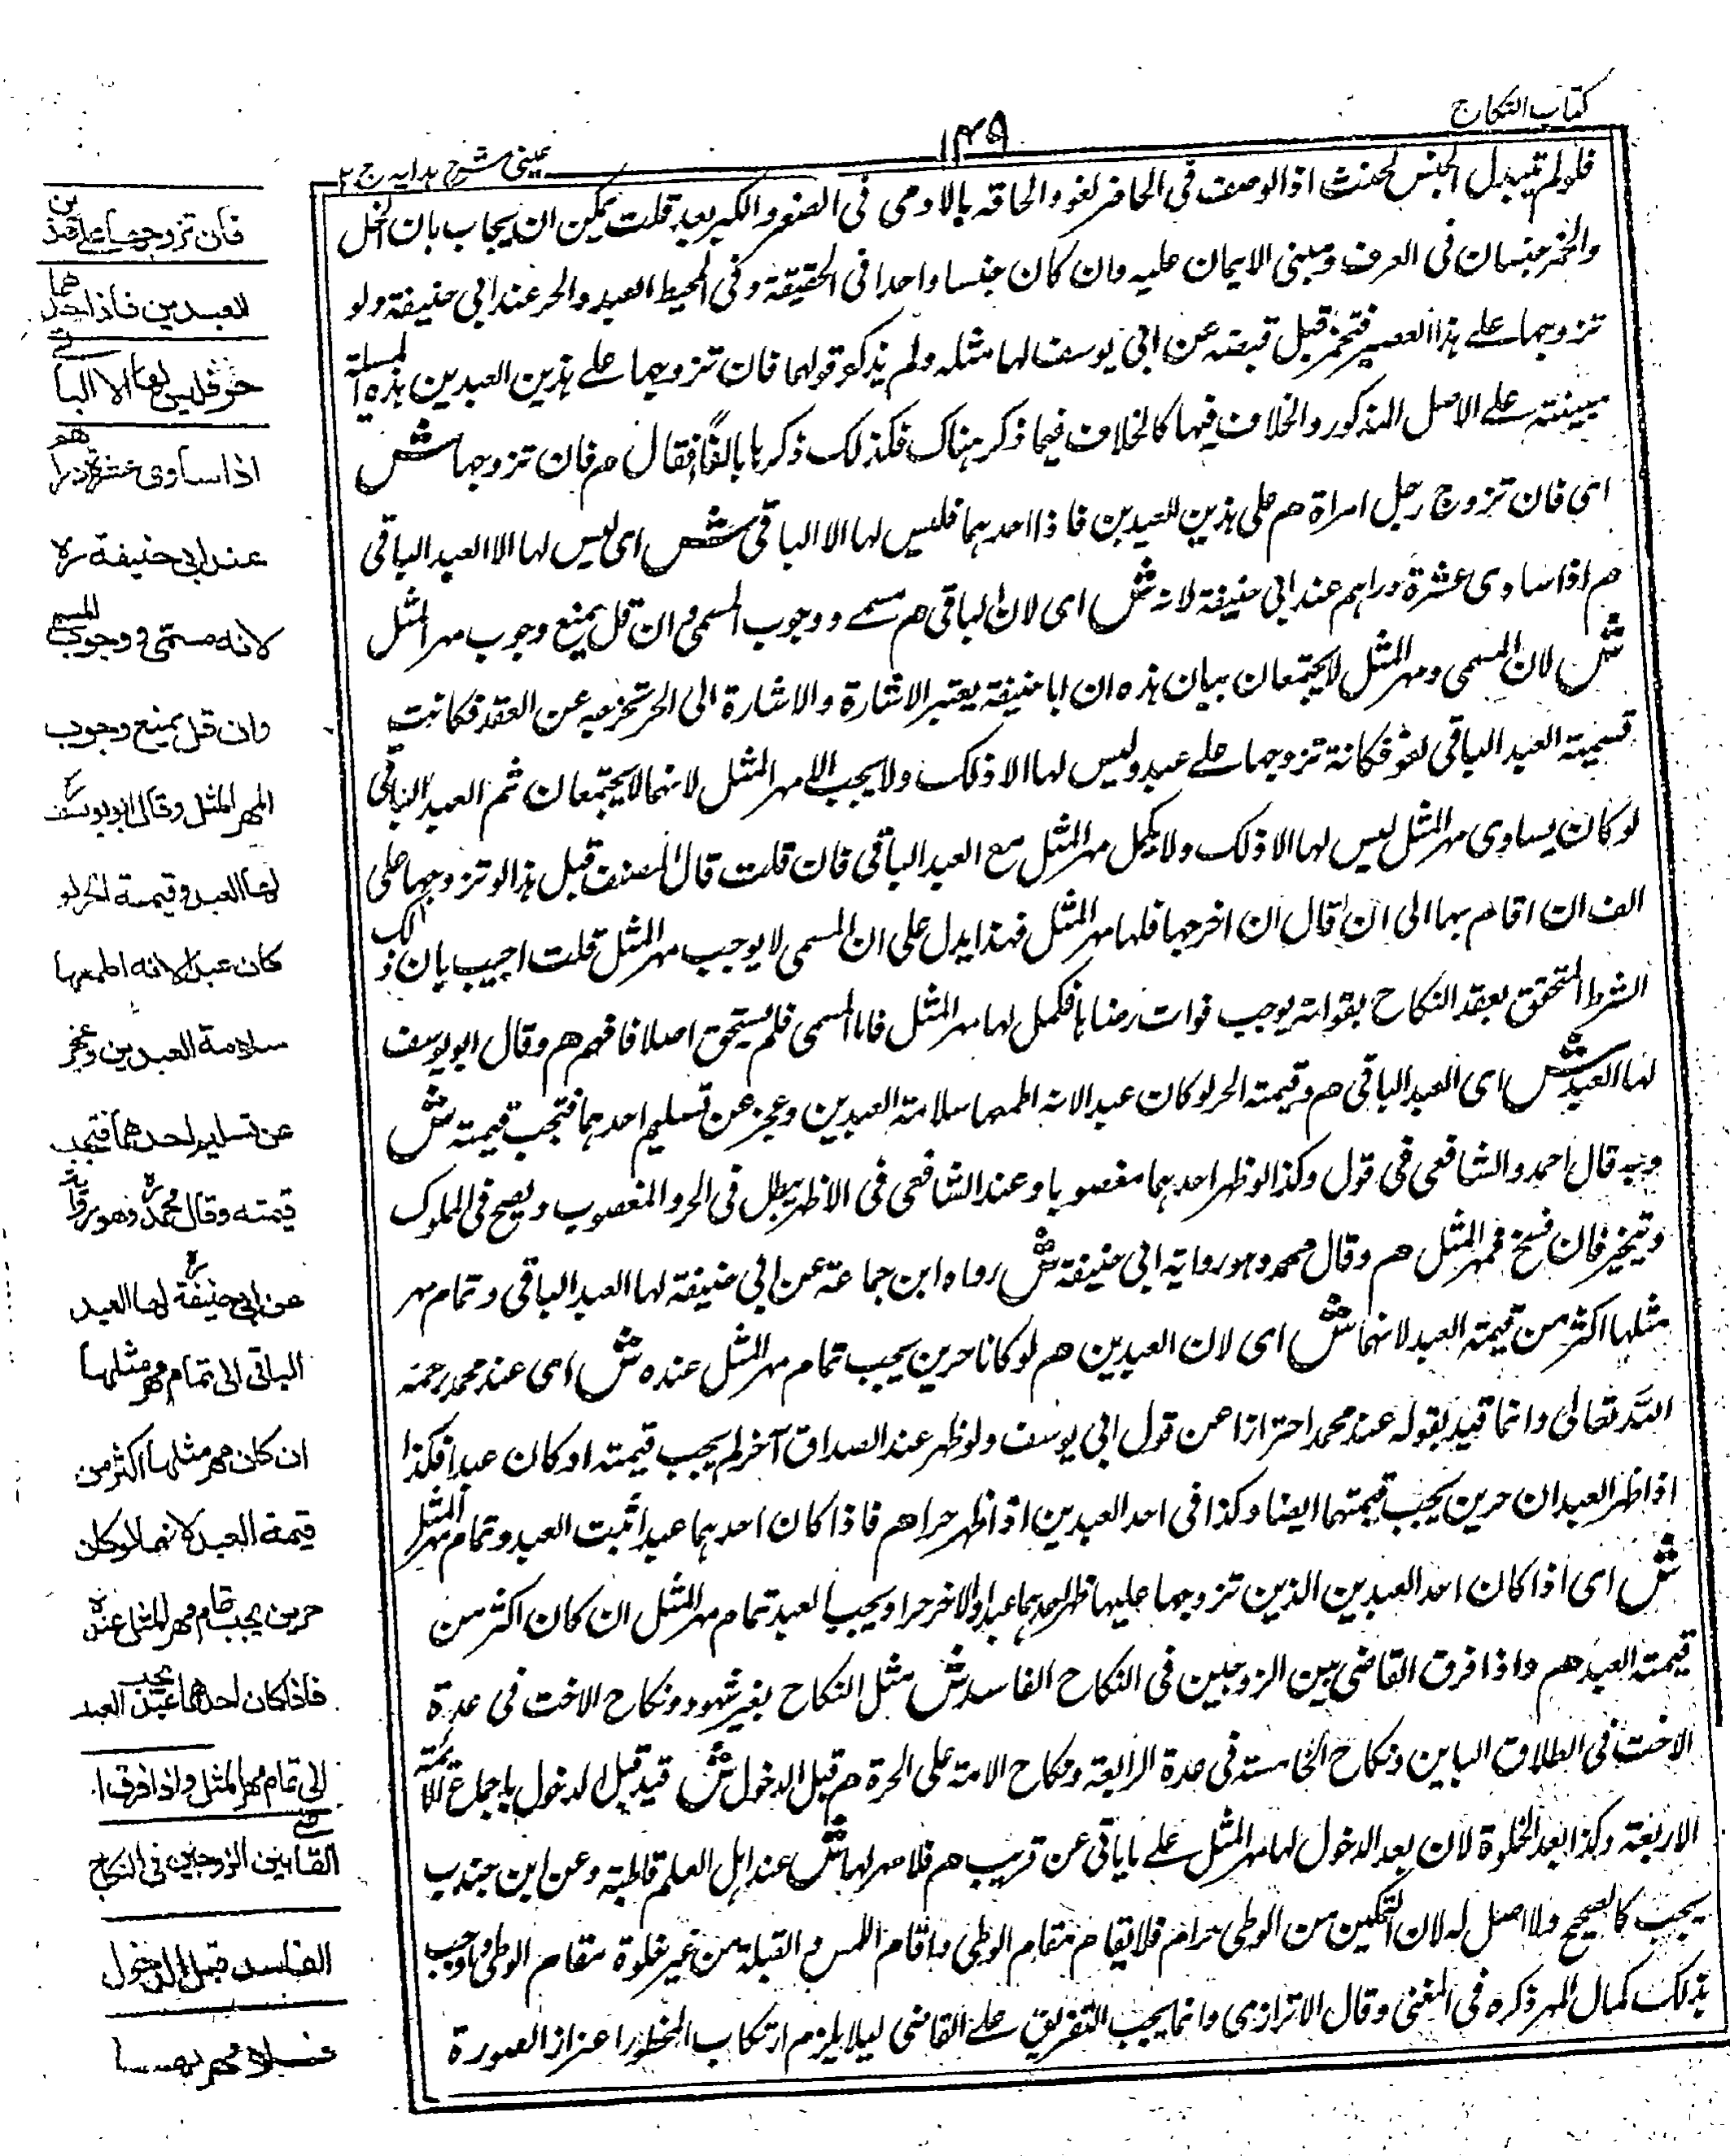 كتاب النكاح
١٤٩
عينى شرح هدايه ج ٢
فلو لم يتبدل الجنس لحنث اذ الوصف فى الحاضر لغو والحاقه بالادمى فى الصغر والكبر بعيد قلت يمكن ان يجاب بان الخل
والخمر جنسان فى العرف ومبنى الايمان عليه وان كان جنسا واحدا فى الحقيقة وفى المحيط العبد والحر عند ابى حنيفة ولو
تزوجها على هذا العصير فتخمر قبل قبضه عن ابى يوسف لها مثله ولم يذكر قولهما فان تزوجها على هذين العبدين هذه المسئلة
مبينة على الاصل المذكور والخلاف فيها كالخلاف فيما ذكر هناك فكذلك ذكرها بالفا فقال م فان تزوجها ش
اى فان تزوج رجل امراة هم على هذين العبدين فاذا احدهما فليس لها الا الباقى ش اى ليس لها الا العبد الباقى
م اذا ساوى عشرة دراهم عند ابى حنيفة لانه ش اى لان الباقى هم مسمى ووجوب المسمى وان قل يمنع وجوب مهر المثل
ش لان المسمى ومهر المثل لا يجتمعان بيان هذه ان ابا حنيفة يعتبر الاشارة والاشارة الى الحر تخرجه عن العقد فكانت
تسمية العبد الباقى لغو فكانه تزوجها على عبد وليس لها الا ذلك ولا يجب الى مهر المثل لانهما لا يجتمعان ثم العبد الباقى
لو كان يساوى مهر المثل ليس لها الا ذلك ولا يكمل مهر المثل مع العبد الباقى فان قلت قال المصنف قبل هذا لو تزوجها على
الف ان اقام بها الى ان قال ان اخرجها فلها مهر المثل فهذا يدل على ان المسمى لا يوجب مهر المثل قلت اجيب بان ذلك
الشرط المتحقق بعقد النكاح بفواته يوجب فوات رضاها فكمل لها مهر المثل فاما المسمى فلم يستحق اصلا فافهم هم وقال ابو يوسف
لها العبد ش اى العبد الباقى هم وقيمة الحر لو كان عبدا لانه اطمعها سلامة العبدين وعجز عن تسليم احدهما فتجب قيمته ش
وبه قال احمد والشافعى فى قول وكذا لو ظهر احدهما مغصوبا وعند الشافعى فى الاظهر يبطل فى الحر والمغصوب ويصح فى المملوك
وتخير فان فسخ فمهر المثل هم وقال محمد وهو رواية ابى حنيفة ش رواه ابن جماعة عن ابى حنيفة لها العبد الباقى وتمام مهر
مثلها اكثر من قيمة العبد لانهما ش اى لان العبدين هم لو كانا حرين يجب تمام مهر المثل عنده ش اى عند محمد رحمه
الله تعالى وانما قيد بقوله عند محمد احترازا عن قول ابى يوسف ولو ظهر عند الصداق آخر لم يجب قيمته او كان عبدا فكذا
اذا ظهر العبدان حرين يجب قيمتهما ايضا وكذا فى احد العبدين اذا ظهر حرا هم فاذا كان احدهما عبدا ثبت العبد وتمام مهر المثل
ش اى اذا كان احد العبدين الذين تزوجها عليها ظهر احدهما عبدا والاخر حرا ويجب العبد تمام مهر المثل ان كان اكثر من
قيمة العبد هم واذا فرق القاضى بين الزوجين فى النكاح الفاسد ش مثل النكاح بغير شهود ونكاح الاخت فى عدة
الاخت فى الطلاق الباين ونكاح الخامسة فى عدة الرابعة ونكاح الامة على الحرة هم قبل الدخول ش قيد قبل الدخول باجماع الائمة
الاربعة وكذا بعد الخلوة لان بعد الدخول لها مهر المثل على ما ياتى عن قريب هم فلا مهر لها ش عند اهل العلم قاطبة وعن ابن جندب
يجب كالصحيح ولا اصل له لان التمكين من الوطى حرام فلا يقام مقام الوطى واقام اللمس والقبلة من غير خلوة مقام الوطى واوجب
بذلك كمال المهر ذكره فى المغنى وقال الاترازى وانما يجب التفريق على القاضى ليلا يلزم ارتكاب المحظور اعزاز الصورة
فان تزوجها على هذين
العبدين فاذا احدهما
حر فليس لها الا الباقى
اذا ساوى عشرة دراهم
عند ابى حنيفة ره
لانه مسمى ووجوب المسمى
وان قل يمنع وجوب
المهر المثل وقال ابو يوسف ره
لها العبد وقيمة الحر لو
كان عبدا لانه اطمعها
سلامة العبدين وعجز
عن تسليم احدهما فتجب
قيمته وقال محمد ره وهو رواية
عن ابى حنيفة ره لها العبد
الباقى الى تمام مهر مثلها
ان كان مهر مثلها اكثر من
قيمة العبد لانهما لو كان
حرين يجب تمام مهر المثل عنده
فاذا كان احدهما عبدا يجب العبد
الى تمام مهر المثل واذا فرق ا
القاضى بين الزوجين فى النكاح
الفاسد قبل الدخول
فلا مهر لها